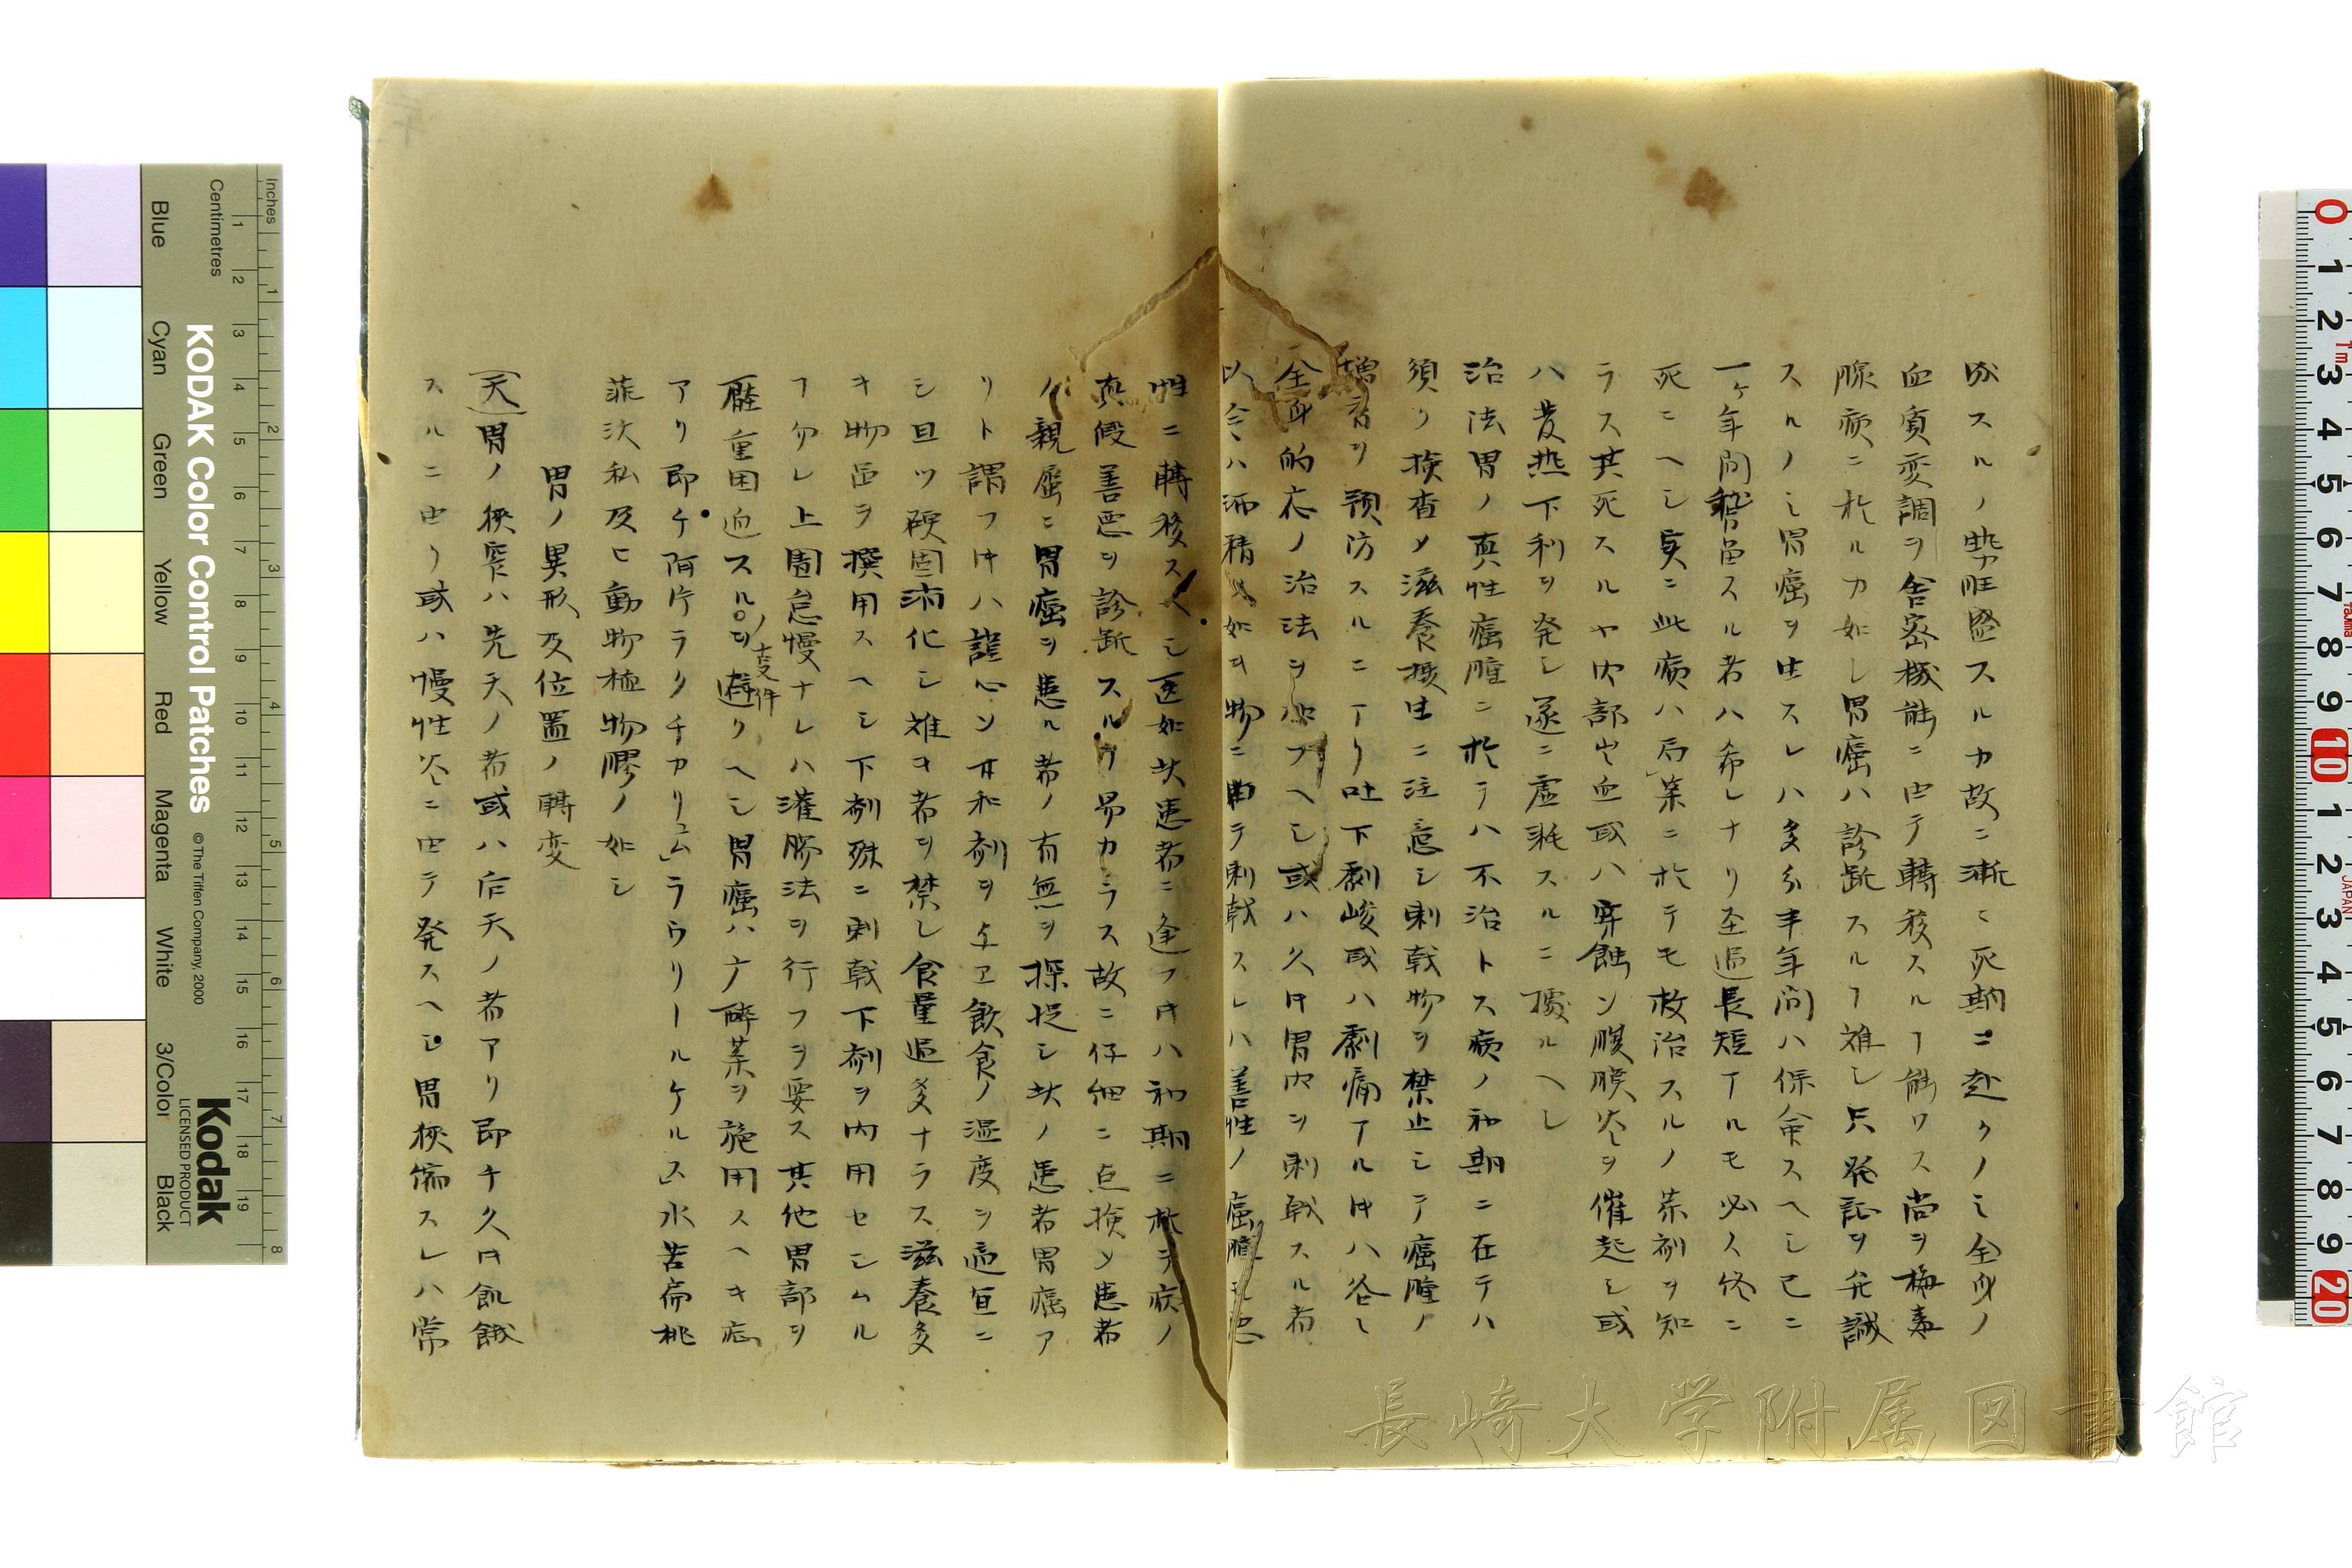 成スルノ勢旺盛スルカ故ニ漸々死期ニ赴クノミ全身ノ
血質変調ヲ舎密機能ニ由テ轉移スルヿ能ワス尚ヲ梅毒
腺病ニ於ルカ如シ胃癌ハ診断スルヿ難シ只発証ヲ弁識
スルノミ胃癌ヲ生スレハ多分半年間ハ保命スヘシ已ニ
一ヶ年間稽留スル者ハ希レナリ至遅長短アルモ必ス終ニ
死ニヘシ実ニ此病ハ局業ニ於テモ救治スルノ薬剤ヲ知
ラス其死スルヤ内部出血或ハ穿蝕ノ腹膜炎ヲ催起シ或
ハ発熱下利ヲ発シ遂ニ虚耗スルニ據ルヘシ
治法胃ノ真性癌腫ニ於テハ不治トス病ノ初期ニ在テハ
須ク検査メ滋養摂生ニ注意シ刺戟物ヲ禁止シテ癌腫ノ
増有ヲ預防スルニアリ吐下剤峻或ハ劇痛アル片ハ
全身的応ノ治法ヲ フヘシ或ハ久片胃内ヲ刺戟スル者
ハ酒精 如キ物ニ由テ刺戟スレハ善性ノ癌腫 悪
性ニ轉移スヘシ医如此患者ニ逢フ片ハ初期ニ於テ病ノ
真假善悪ヲ診断スル易カラス故ニ仔細ニ点検メ患者
ノ親属ニ胃癌ヲ患ル者ノ有無ヲ探捉シ此ノ患者胃癌ア
リト謂フ片ハ謹心ノ甘和剤ヲ与ヱ飲食ノ温度ヲ適宜ニ
シ且ツ硬固消化シ難キ者ヲ禁シ食量過多ナラス滋養多
キ物品ヲ撰用スヘシ下剤殊ニ刺戟下剤ヲ内用セシムル
ヿ勿レ上圊怠慢ナレハ灌腸法ヲ行フヲ要ス其他胃部ヲ
壓重困迫スル○ヲ避クヘシ胃癌ハ广醉薬ヲ施用スヘキ症
ノ支件
アリ即チ阿片ラクチカリュム」ラウリールケルス」水苦扁桃
菲沃私及ヒ動物植物膠ノ如シ
胃ノ異形及位置ノ轉変
天胃ノ狭窄ハ先天ノ者或ハ后天ノ者アリ即チ久片飢餓
スルニ由リ或ハ慢性炎ニ由テ発スヘシ胃狭窄スレハ常
KODAK Color Control Patches
© The Tiffen Company, 2000
Kodak
LICENSED PRODUCT
Inches
Centimetres
Blue
Cyan
Green
Yellow
Red
Magenta
White
3/Color
Black
長崎大学附属図書館